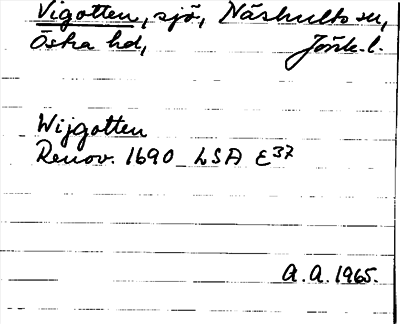 Vigotten, sjö, Näshults sn,
Östra hd, Jönk. l.
Wijgotten
Renov. 1690 LSA E37
A. A. 1965.